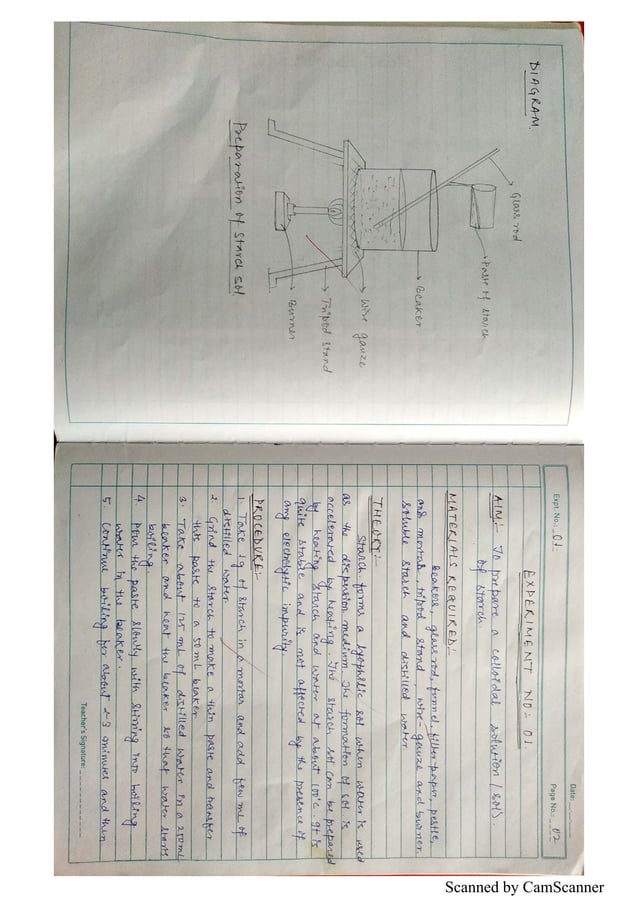 DIAGRAM
Glass rod
Paste of starch
Beaker
Wire gauze
Tripod stand
Burner
Preparation of starch sol.
Date:
Expt. No.: 01
Page No.: 02
EXPERIMENT NO:- 01.
AIM:- To prepare a colloidal solution (sol).
of starch.
MATERIALS REQUIRED:-
beakers, glass rod, funnel, filter-paper, pestle,
and mortar, tripod stand, wire-gauze and burner.
soluble starch and distilled water
THEORY:-
Starch forms a lyophilic sol when water is used
as the dispersion medium. The formation of sol is
accelerated by heating. The starch sol can be prepared
by heating starch and water at about 100°c. It is
quite stable and is not affected by the presence of
any electrolytic impurity
PROCEDURE:-
1. Take 1g of starch in a mortar and add few ml of
distilled water.
2. Grind the starch to make a thin paste and transfer
this paste to a 50 mL beaker.
3. Take about 125 ml of distilled water in a 250 mL
beaker and heat the beaker so that water starts
boiling
4. Pour the paste slowly with stiring into boiling
water in the beaker.
5. Continue boiling for about 2-3 minutes and then
Teacher's Signature:
Scanned by CamScanner